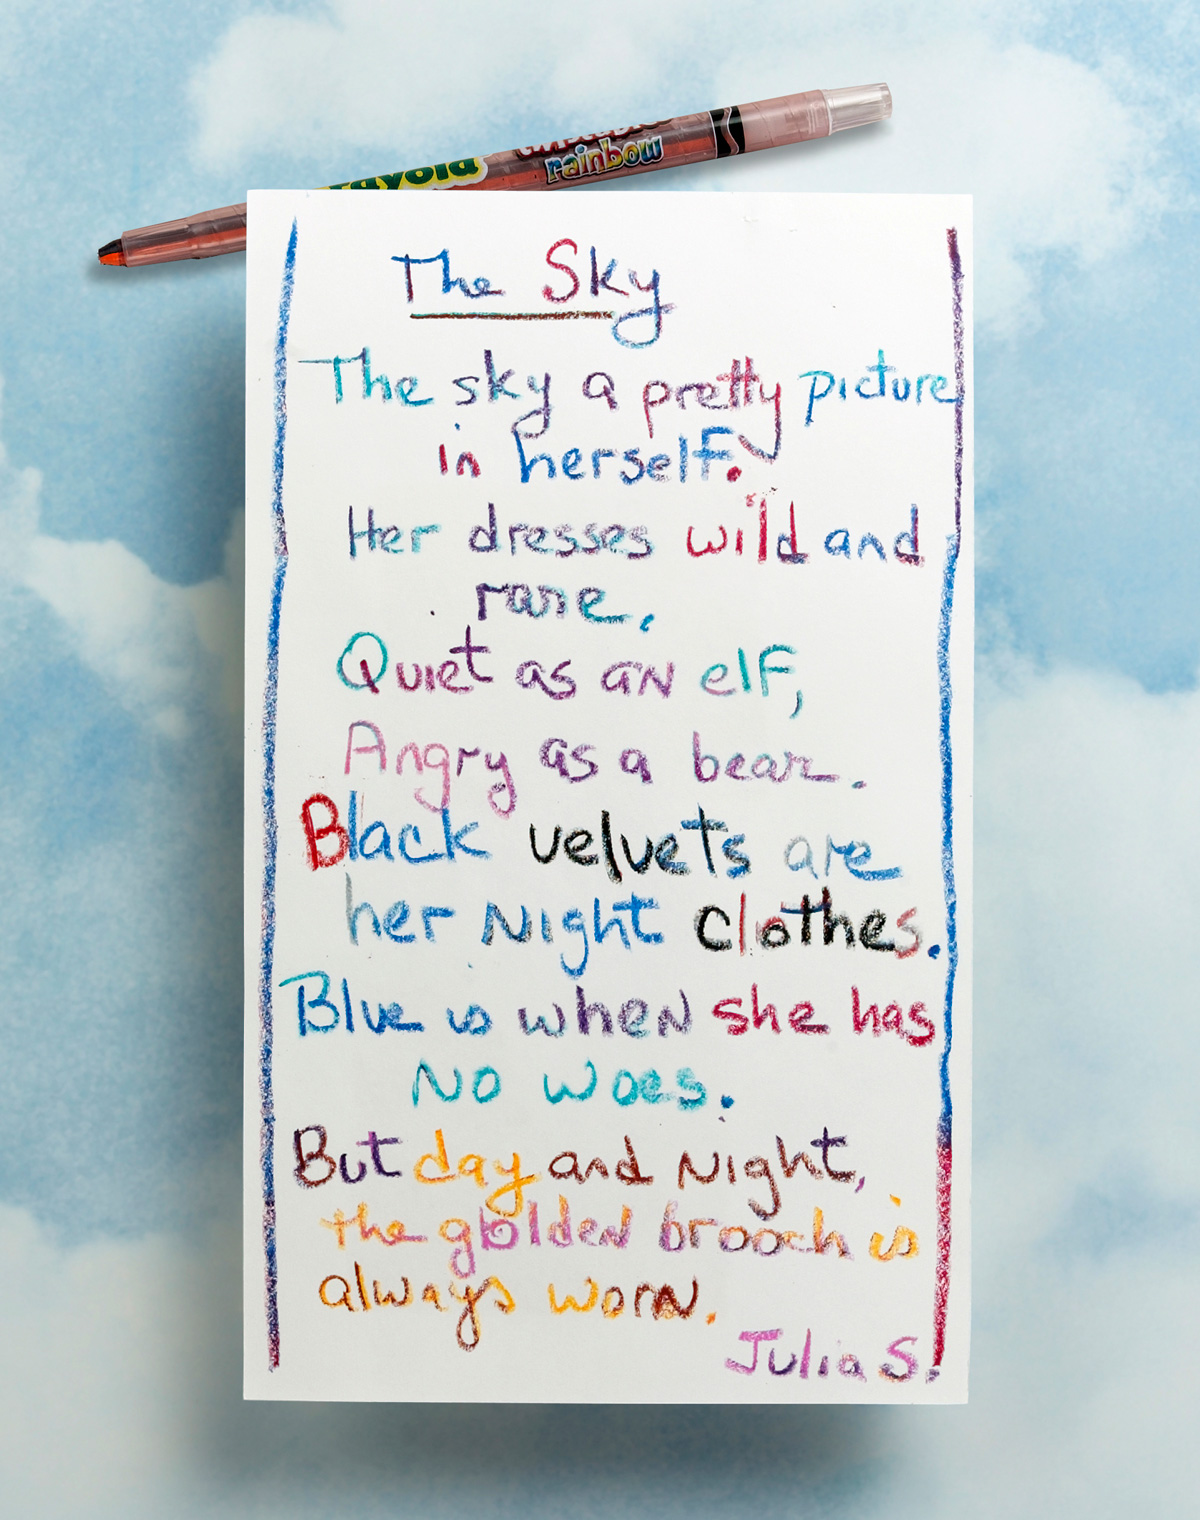 rayola
rainbow
The Sky
The sky a pretty picture
in herself.
Her dresses wild and
rare.
Quiet as an elf,
Angry as a bear.
Black velvets are
her Night clothes.
Blue is when she has
No woes.
But day and Night,
the golden brooch is
always worn.
Julia S.